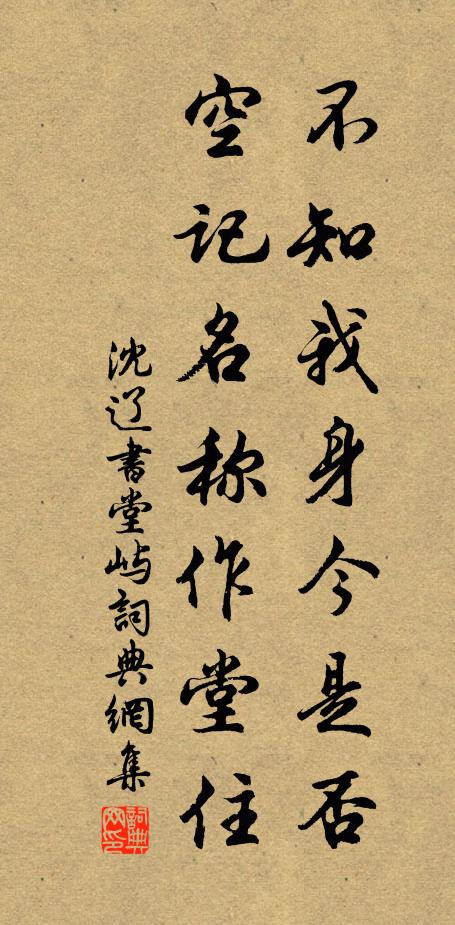 不知我身今是否
空记名称作堂住
沈辽书堂屿詞典網集
詞典网印